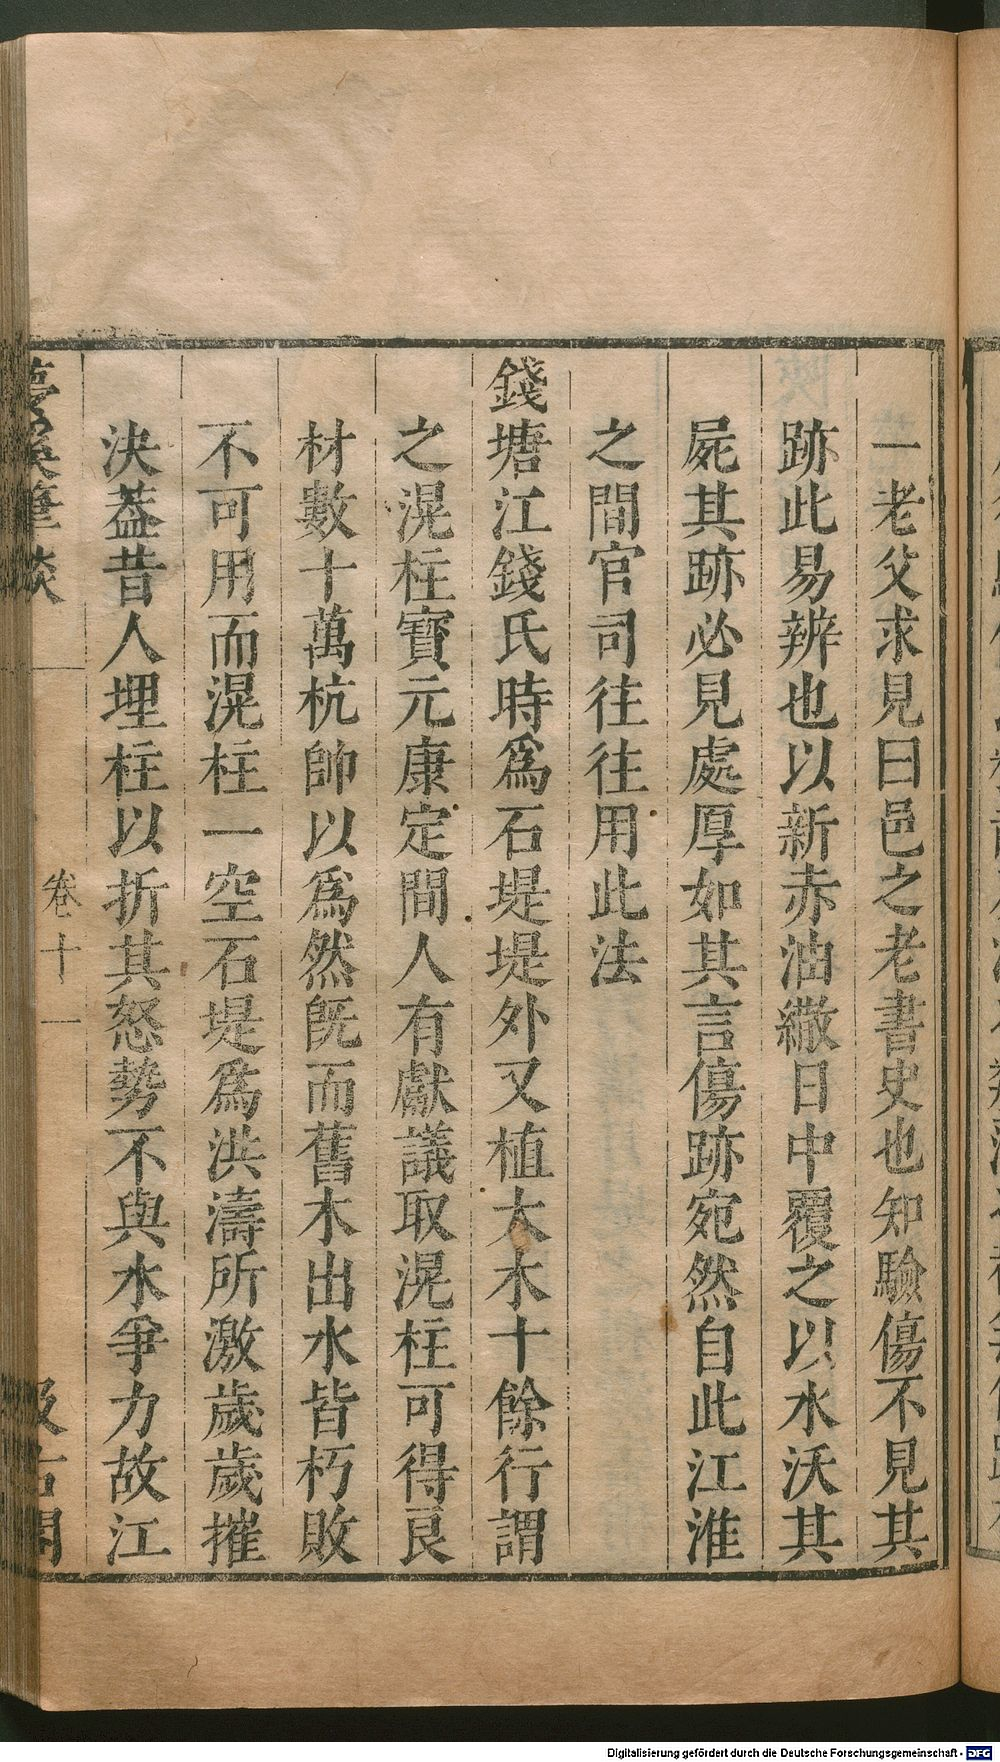 一老父求見曰邑之老書史也知驗傷不見其
跡此易辨也以新赤油繖日中覆之以水沃其
屍其跡必見處厚如其言傷跡宛然自此江淮
之間官司往往用此法
錢塘江錢氏時爲石堤堤外又植大木十餘行謂
之滉柱寶元康定間人有獻議取滉柱可得良
材數十萬杭帥以爲然旣而舊木出水皆朽敗
不可用而滉柱一空石堤爲洪濤所激歲歲摧
決葢昔人埋柱以折其怒勢不與水爭力故江
夢溪筆談
卷十一
汲古閣
Digitalisierung gefördert durch die Deutsche Forschungsgemeinschaft - DFG